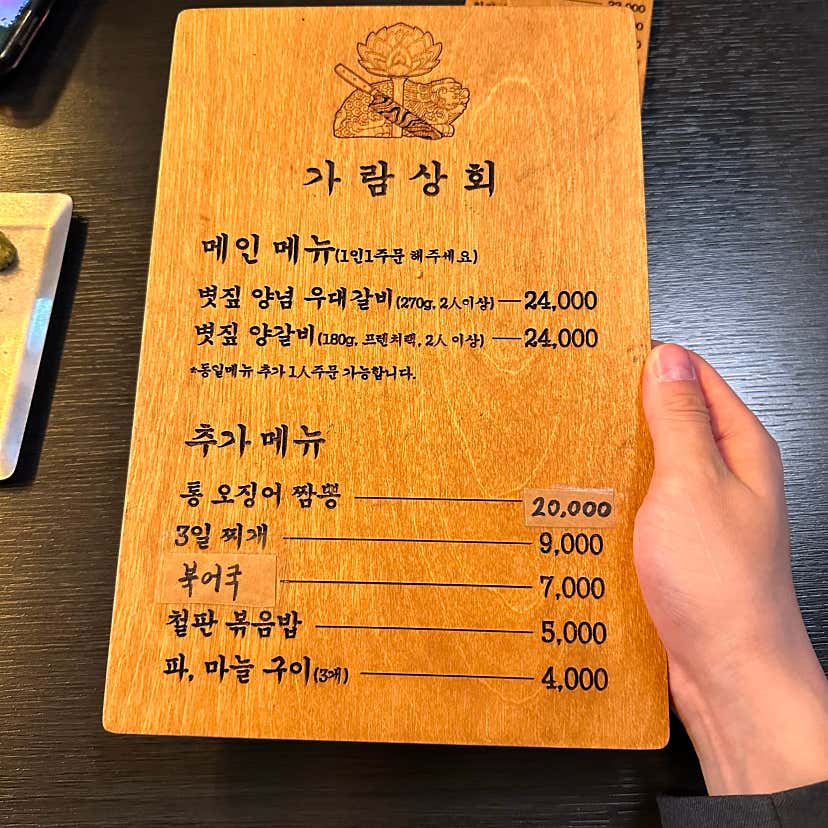 가람상회
메인 메뉴(1인1주문 해주세요)
볏짚 양념 우대갈비(270g, 2人이상) 24,000
볏짚 양갈비(180g, 프렌치랙, 2人 이상) 24,000
*동일메뉴 추가 1人주문 가능합니다.
추가 메뉴
통 오징어 짬뽕 20,000
3일 찌개 9,000
북어국 7,000
철판 볶음밥 5,000
파, 마늘 구이(3개) 4,000